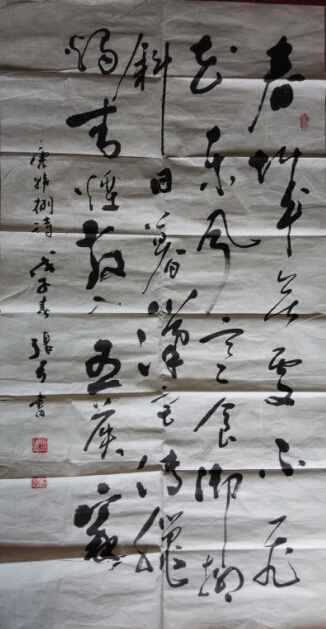 春城无处不飛
花東風寒食御柳
斜日暮漢宮傳蠟
燭青煙散入五侯家
唐韩翃詩 戊子春 張書